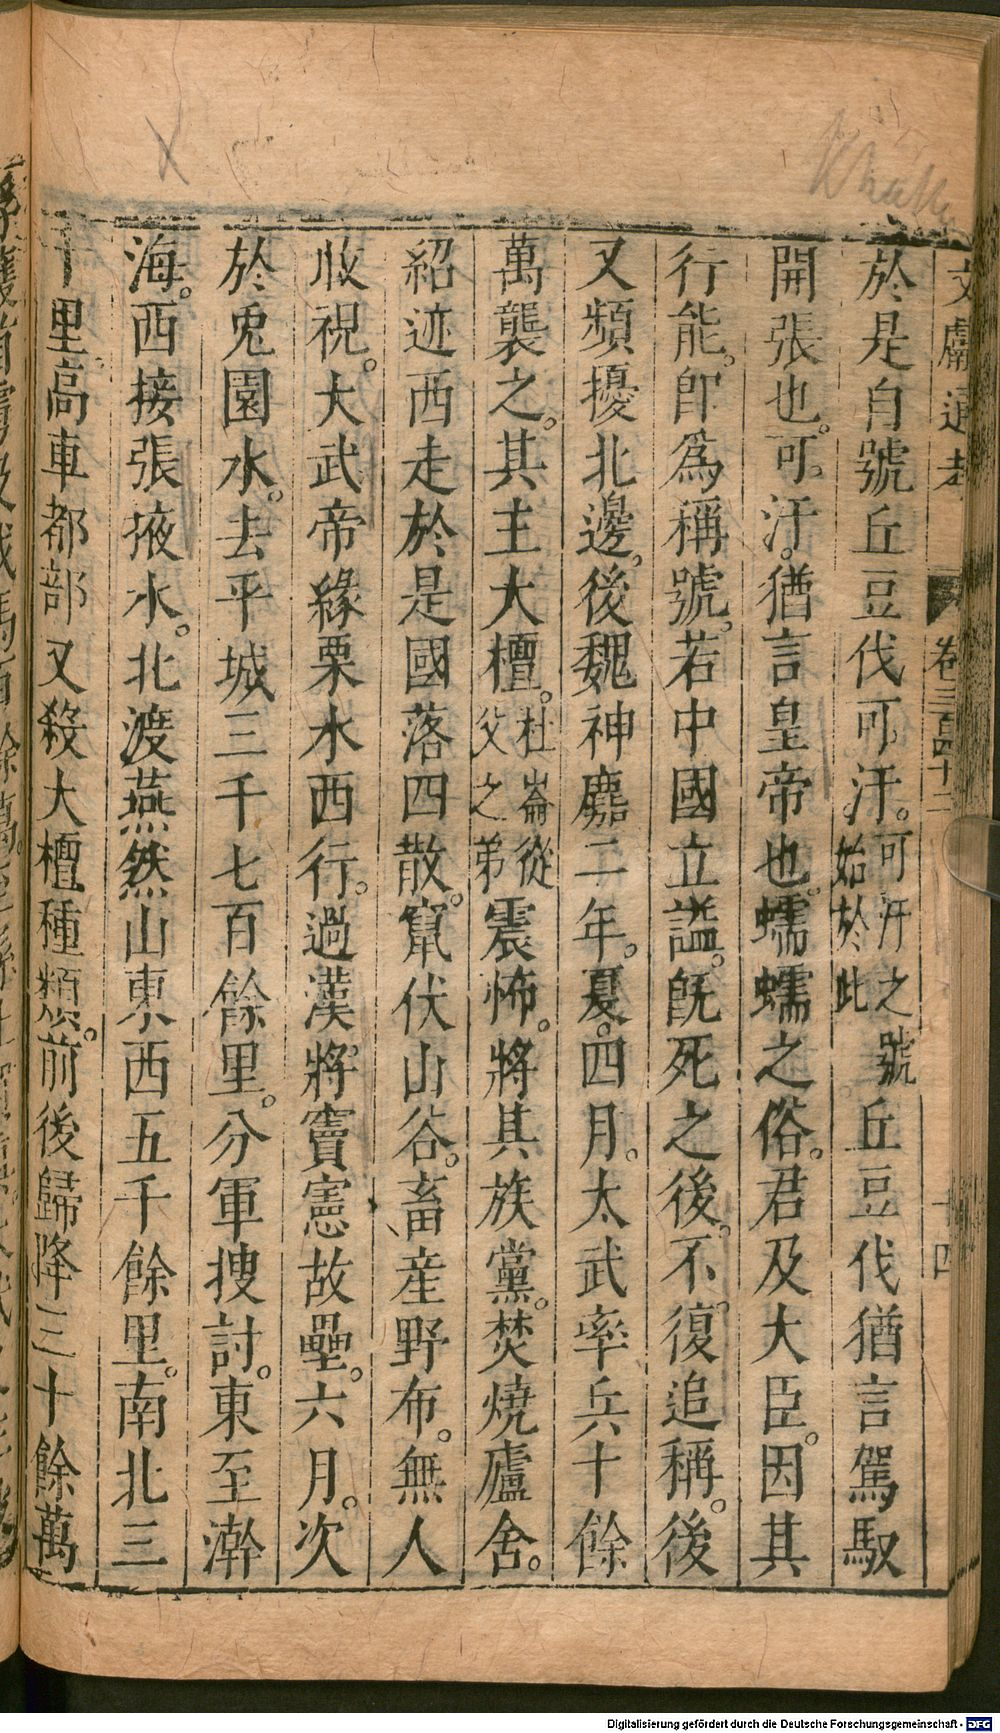 文獻通考 卷三百四十二 十四
於是自號丘豆伐可汗。可汗之號始於此丘豆伐猶言駕馭
開張也。可汗。猶言皇帝也。蠕蠕之俗。君及大臣。因其
行能。卽爲稱號。若中國立謚。旣死之後。不復追稱。後
又頻擾北邊。後魏神䴥二年。夏。四月。太武率兵十餘
萬襲之。其主大檀。杜崙從父之弟震怖。將其族黨。焚燒廬舍。
紹迹西走於是國落四散。竄伏山谷。畜産野布。無人
收視。大武帝緣栗水西行。過漢將竇憲故壘。六月。次
於兎園水。去平城三千七百餘里。分軍捜討。東至澣
海。西接張掖水。北渡燕然山東西五千餘里。南北三
千里。高車都部又殺大檀種類。前後歸降三十餘萬
Digitalisierung gefördert durch die Deutsche Forschungsgemeinschaft - DFG